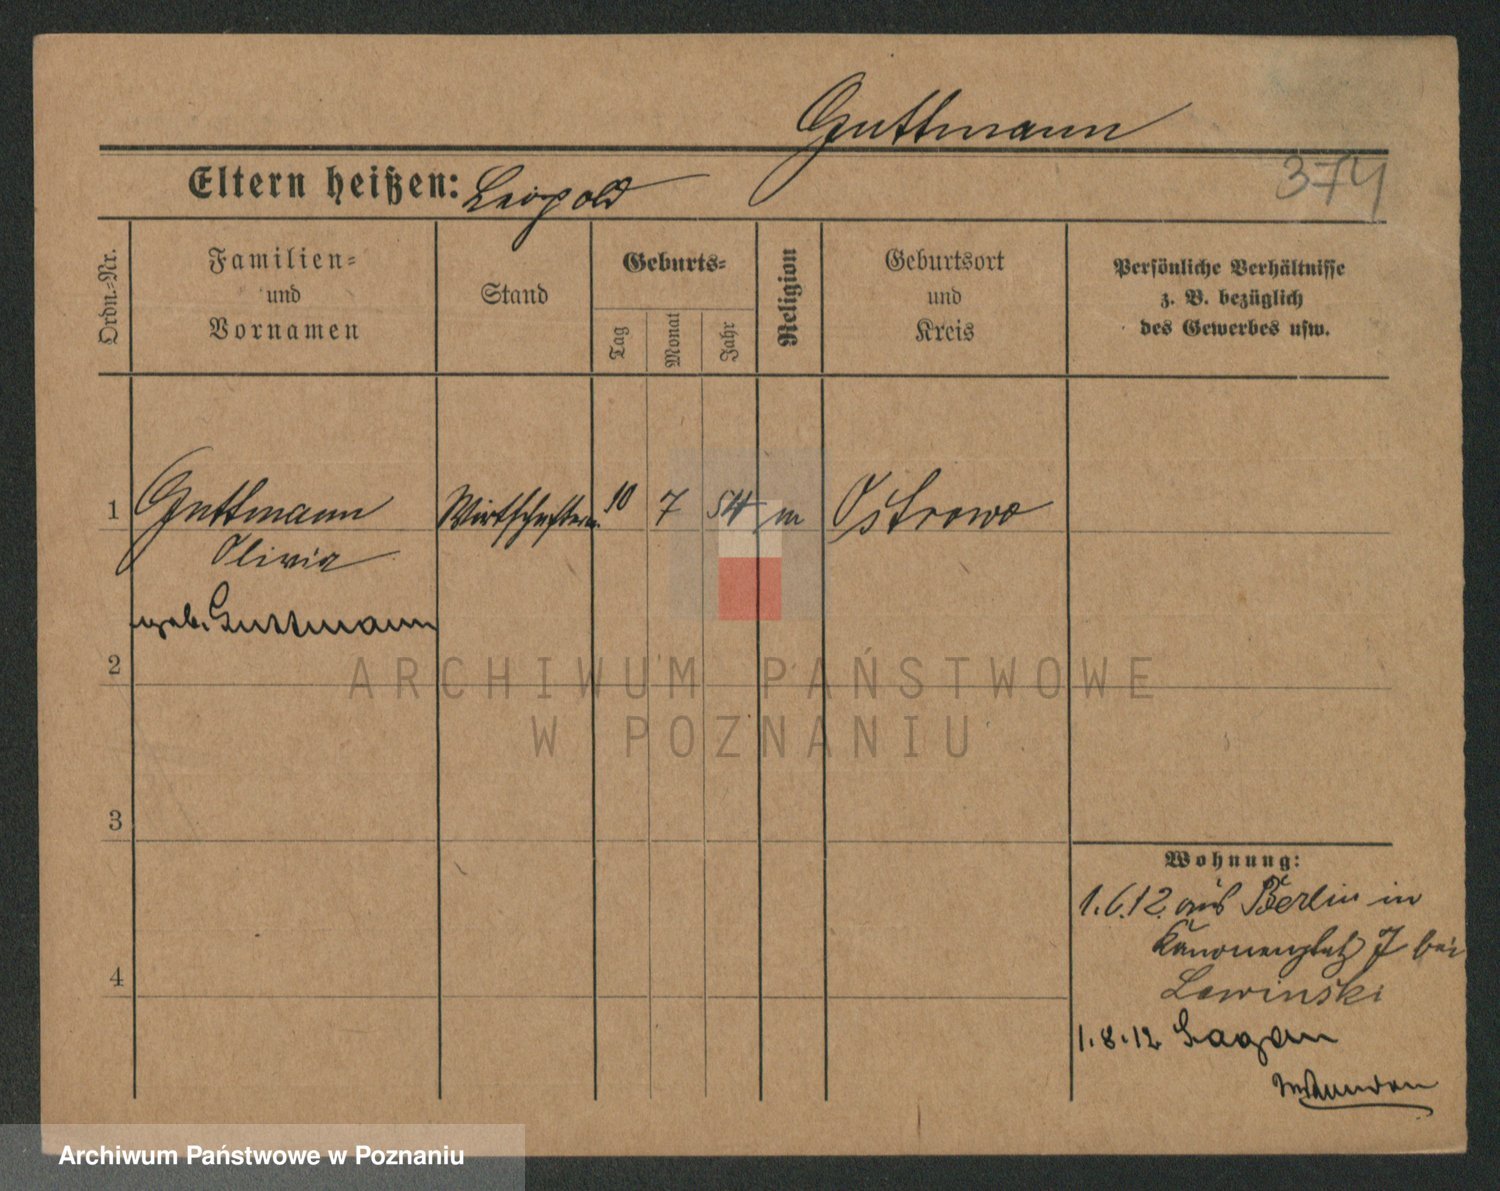 Guttmann
374
Eltern heißen: Leopold
Ordn.-Nr.
Familien-
und
Vornamen
Stand
Geburts-
Tag
Monat
Jahr
Religion
Geburtsort
und
Kreis
Persönliche Verhältnisse
z. B. bezüglich
des Gewerbes usw.
1 Guttmann 10 7 54 m Ostrowo
Olivia
geb. Guttmann
2
ARCHIWUM PAŃSTWOWE
W POZNANIU
3
Wohnung:
1.6.12 aus Berlin in
Kanonenplatz 7 bei
Lewinski
4
1.8.12 Sagan
Archiwum Państwowe w Poznaniu